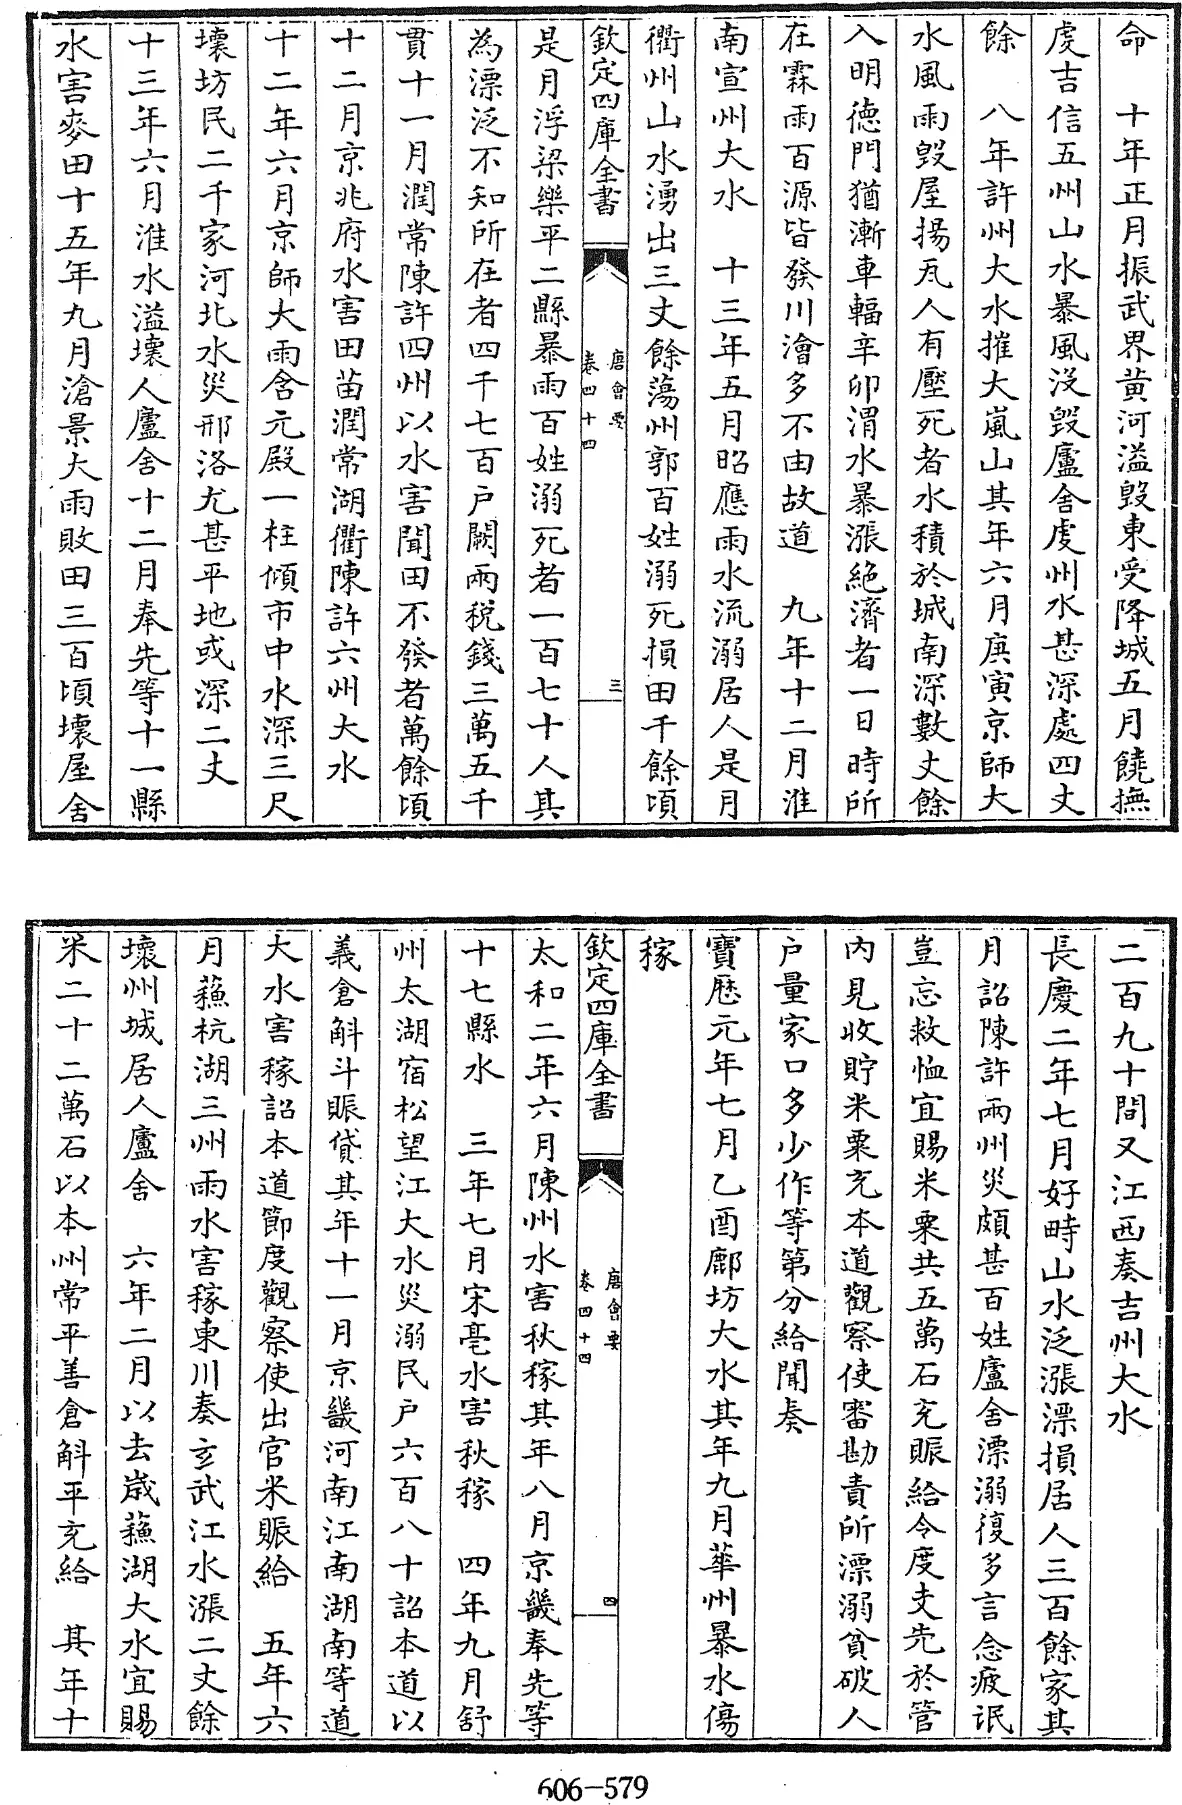 命　十年正月振武界黄河溢毁東受降城五月饒撫
虔吉信五州山水暴風沒毁廬舍虔州水甚深處四丈
餘　八年許州大水摧大嵐山其年六月庚寅京師大
水風雨毁屋揚瓦人有壓死者水積於城南深數丈餘
入明德門猶漸車輻辛卯渭水暴漲絶濟者一日時所
在霖雨百源皆發川澮多不由故道　九年十二月淮
南宣州大水　十三年五月昭應雨水流溺居人是月
衢州山水湧出三丈餘蕩州郭百姓溺死損田千餘頃
欽定四庫全書　唐會要　卷四十四　三
是月浮梁樂平二縣暴雨百姓溺死者一百七十人其
為漂泛不知所在者四千七百户闕兩税錢三萬五千
貫十一月潤常陳許四州以水害聞田不發者萬餘頃
十二月京兆府水害田苗潤常湖衢陳許六州大水
十二年六月京師大雨含元殿一柱傾市中水深三尺
壞坊民二千家河北水災邢洛尤甚平地或深二丈
十三年六月淮水溢壞人廬舍十二月奉先等十一縣
水害麥田十五年九月滄景大雨敗田三百頃壞屋舍
二百九十間又江西奏吉州大水
長慶二年七月好畤山水泛漲漂損居人三百餘家其
月詔陳許兩州災頗甚百姓廬舍漂溺復多言念疲氓
豈忘救恤宜賜米粟共五萬石充賑給令度支先於管
内見收貯米粟充本道觀察使審勘責所漂溺貧破人
户量家口多少作等第分給聞奏
寶歷元年七月乙酉鄜坊大水其年九月華州暴水傷
稼
欽定四庫全書　唐會要　卷四十四　四
太和二年六月陳州水害秋稼其年八月京畿奉先等
十七縣水　三年七月宋亳水害秋稼　四年九月舒
州太湖宿松望江大水災溺民户六百八十詔本道以
義倉斛斗賑貸其年十一月京畿河南江南湖南等道
大水害稼詔本道節度觀察使出官米賑給　五年六
月蘓杭湖三州雨水害稼東川奏玄武江水漲二丈餘
壞州城居人廬舍　六年二月以去歳蘓湖大水宜賜
米二十二萬石以本州常平善倉斛平充給　其年十
606-579